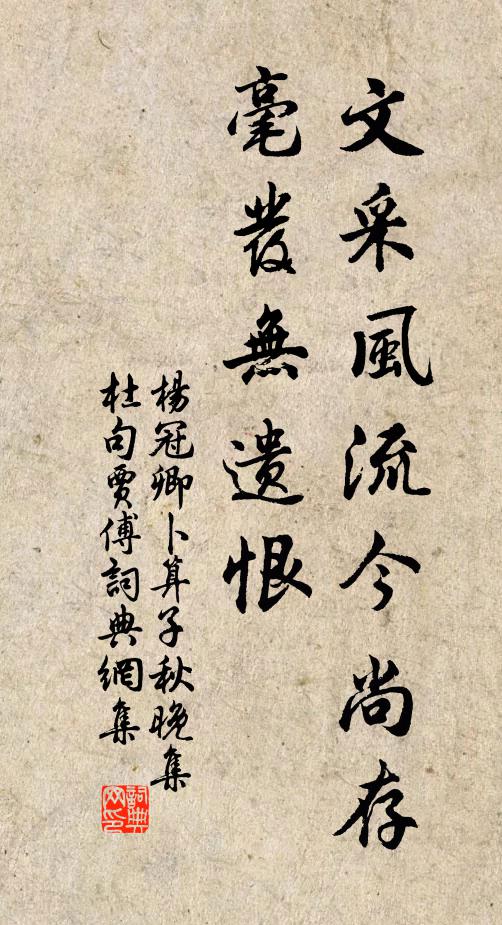 文采風流今尚存
毫發無遺恨
楊冠卿卜算子秋晚集
杜句賈傅詞典網集
詞典网印